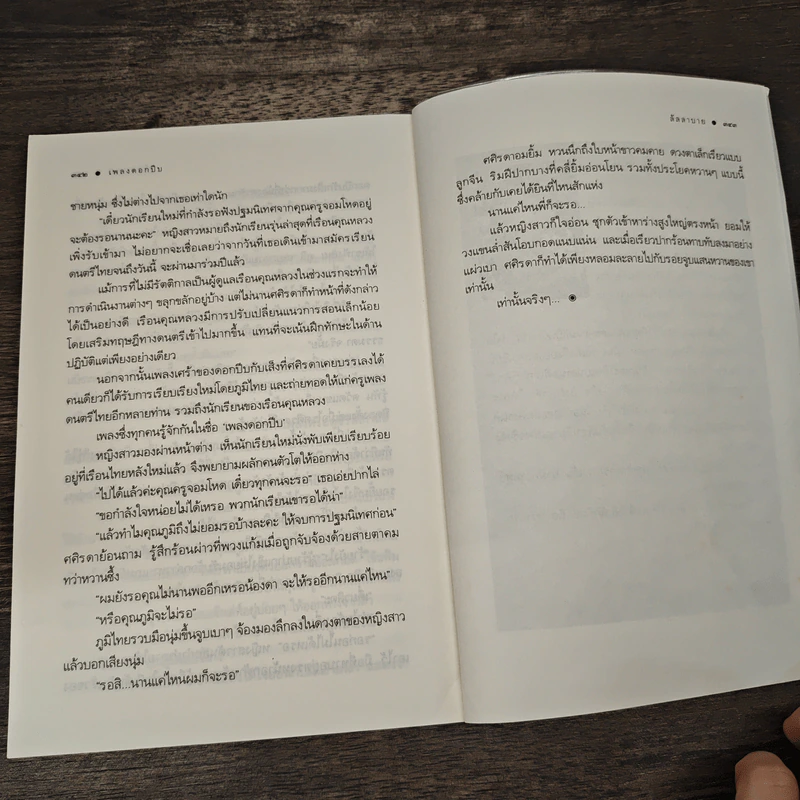 ๓๔๒ ● เพลงดอกปีบ
ชายหนุ่ม ซึ่งไม่ต่างไปจากเธอเท่าใดนัก
"เดี๋ยวนักเรียนใหม่ที่กำลังรอฟังปฐมนิเทศจากคุณครูจอมโหดอยู่
จะต้องรอนานนะคะ" หญิงสาวหมายถึงนักเรียนรุ่นล่าสุดที่เรือนคุณหลวง
เพิ่งรับเข้ามา ไม่อยากจะเชื่อเลยว่าจากวันที่เธอเดินเข้ามาสมัครเรียน
ดนตรีไทยจนถึงวันนี้ จะผ่านมาร่วมปีแล้ว
แม้การที่ไม่มีรัตติกาลเป็นผู้ดูแลเรือนคุณหลวงในช่วงแรกจะทำให้
การดำเนินงานต่างๆ ขลุกขลักอยู่บ้าง แต่ไม่นานศศิรดาก็ทำหน้าที่ดังกล่าว
ได้เป็นอย่างดี เรือนคุณหลวงมีการปรับเปลี่ยนแนวการสอนเล็กน้อย
โดยเสริมทฤษฎีทางดนตรีเข้าไปมากขึ้น แทนที่จะเน้นฝึกทักษะในด้าน
ปฏิบัติแต่เพียงอย่างเดียว
นอกจากนั้นเพลงเศร้าของดอกปีบกับเสิ่งที่ศศิรดาเคยบรรเลงได้
คนเดียวก็ได้รับการเรียบเรียงใหม่โดยภูมิไทย และถ่ายทอดให้แก่ครูเพลง
ดนตรีไทยอีกหลายท่าน รวมถึงนักเรียนของเรือนคุณหลวง
เพลงซึ่งทุกคนรู้จักกันในชื่อ "เพลงดอกปีบ"
หญิงสาวมองผ่านหน้าต่าง เห็นนักเรียนใหม่นั่งพับเพียบเรียบร้อย
อยู่ที่เรือนไทยหลังใหม่แล้ว จึงพยายามผลักคนตัวโตให้ออกห่าง
"ไปได้แล้วค่ะคุณครูจอมโหด เดี๋ยวทุกคนจะรอ" เธอเอ่ยปากไล่
"ขอกำลังใจหน่อยไม่ได้เหรอ พวกนักเรียนเขารอได้น่า"
"แล้วทำไมคุณภูมิถึงไม่ยอมรอบ้างละคะ ให้จบการปฐมนิเทศก่อน"
ศศิรดาย้อนถาม รู้สึกร้อนผ่าวที่พวงแก้มเมื่อถูกจับจ้องด้วยสายตาคม
ทว่าหวานซึ้ง
"ผมยังรอคุณไม่นานพออีกเหรอน้องดา จะให้รออีกนานแค่ไหน"
"หรือคุณภูมิจะไม่รอ"
ภูมิไทยรวบมือนุ่มขึ้นจูบเบาๆ จ้องมองลึกลงในดวงตาของหญิงสาว
แล้วบอกเสียงนุ่ม
"รอสิ...นานแค่ไหนผมก็จะรอ"
ลัลลาบาย ● ๓๔๓
ศศิรดาอมยิ้ม หวนนึกถึงใบหน้าขาวคมคาย ดวงตาเล็กเรียวแบบ
ลูกจีน ริมฝีปากบางที่คลี่ยิ้มอ่อนโยน รวมทั้งประโยคหวานๆ แบบนี้
ซึ่งคล้ายกับเคยได้ยินที่ไหนสักแห่ง
นานแค่ไหนพี่ก็จะรอ...
แล้วหญิงสาวก็ใจอ่อน ซุกตัวเข้าหาร่างสูงใหญ่ตรงหน้า ยอมให้
วงแขนล่ำสันโอบกอดแนบแน่น และเมื่อเรียวปากร้อนทาบทับลงมาอย่าง
แผ่วเบา ศศิรดาก็ทำได้เพียงหลอมละลายไปกับรอยจูบแสนหวานของเขา
เท่านั้น
เท่านั้นจริงๆ... ◉